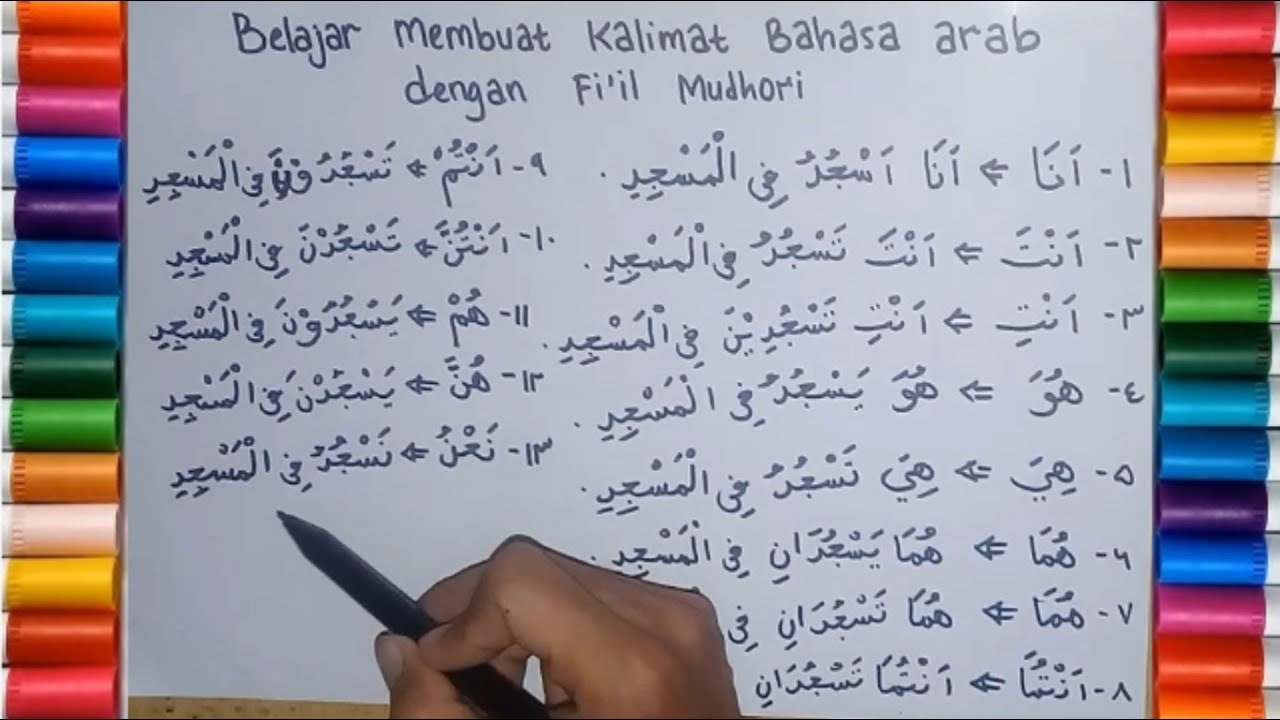 Belajar Membuat Kalimat Bahasa arab
dengan Fi'il Mudhori
١- اَنَا ⇐ اَنَا اَسْجُدُ فِى الْمَسْجِدِ .
٢- اَنْتَ ⇐ اَنْتَ تَسْجُدُ فِى الْمَسْجِدِ .
٣- اَنْتِ ⇐ اَنْتِ تَسْجُدِيْنَ فِى الْمَسْجِدِ .
٤- هُوَ ⇐ هُوَ يَسْجُدُ فِى الْمَسْجِدِ .
٥- هِيَ ⇐ هِيَ تَسْجُدُ فِى الْمَسْجِدِ .
٦- هُمَا ⇐ هُمَا يَسْجُدَانِ فِى الْمَسْجِدِ .
٧- هُمَا ⇐ هُمَا تَسْجُدَانِ فِى
٨- اَنْتُمَا ⇐ اَنْتُمَا تَسْجُدَانِ
٩- اَنْتُمْ ⇐ تَسْجُدُوْنَ فِى الْمَسْجِدِ
١٠- اَنْتُنَّ ⇐ تَسْجُدْنَ فِى الْمَسْجِدِ
١١- هُمْ ⇐ يَسْجُدُوْنَ فِى الْمَسْجِدِ
١٢- هُنَّ ⇐ يَسْجُدْنَ فِى الْمَسْجِدِ
١٣- نَحْنُ ⇐ نَسْجُدُ فِى الْمَسْجِدِ